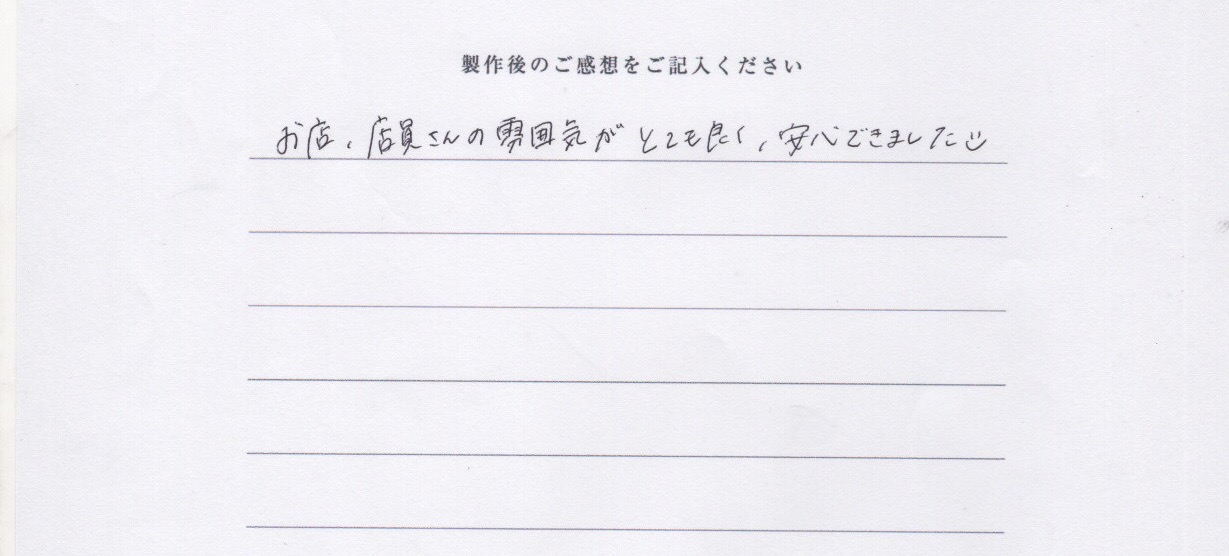 製作後のご感想をご記入ください
お店、店員さんの雰囲気がとても良く、安心できました☺